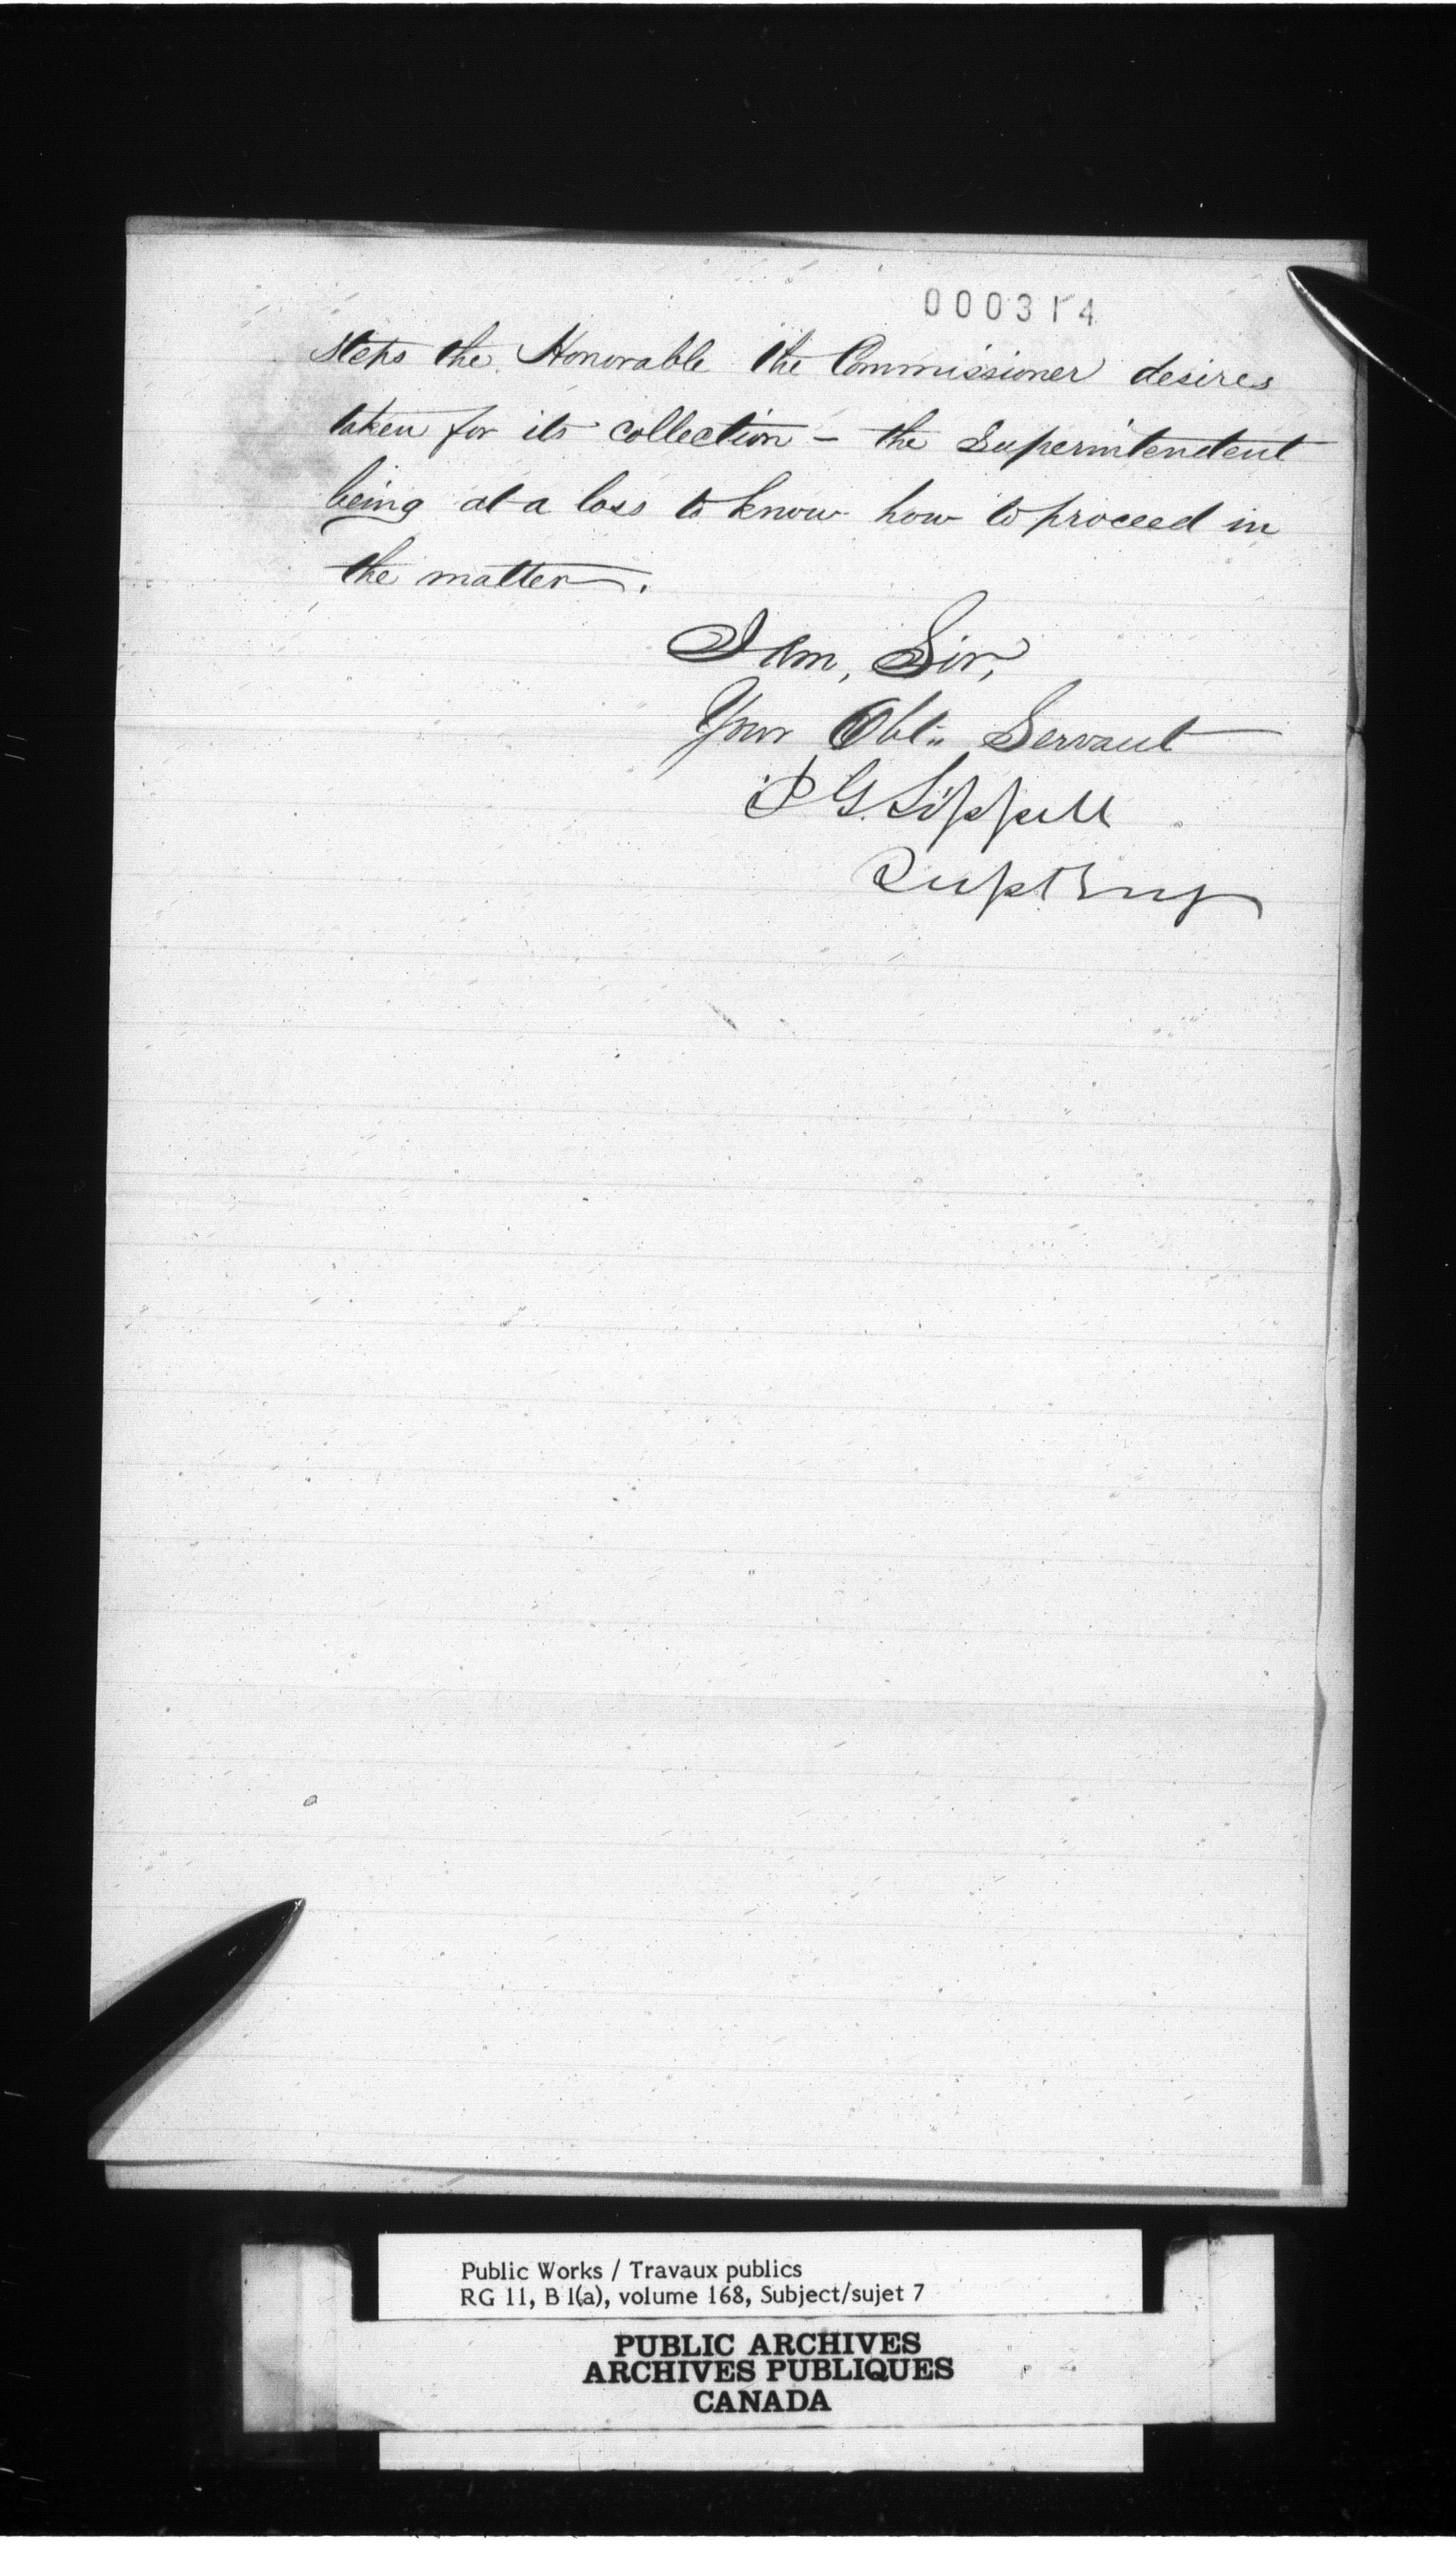 000314
steps the Honorable the Commissioner desires
taken for its collection – the Superintendent
being at a loss to know how to proceed in
the matter.
I am, Sir,
Your Obt. Servant
G. Sippell
Supt Eng
Public Works / Travaux publics
RG 11, B 1(a), volume 168, Subject/sujet 7
PUBLIC ARCHIVES
ARCHIVES PUBLIQUES
CANADA